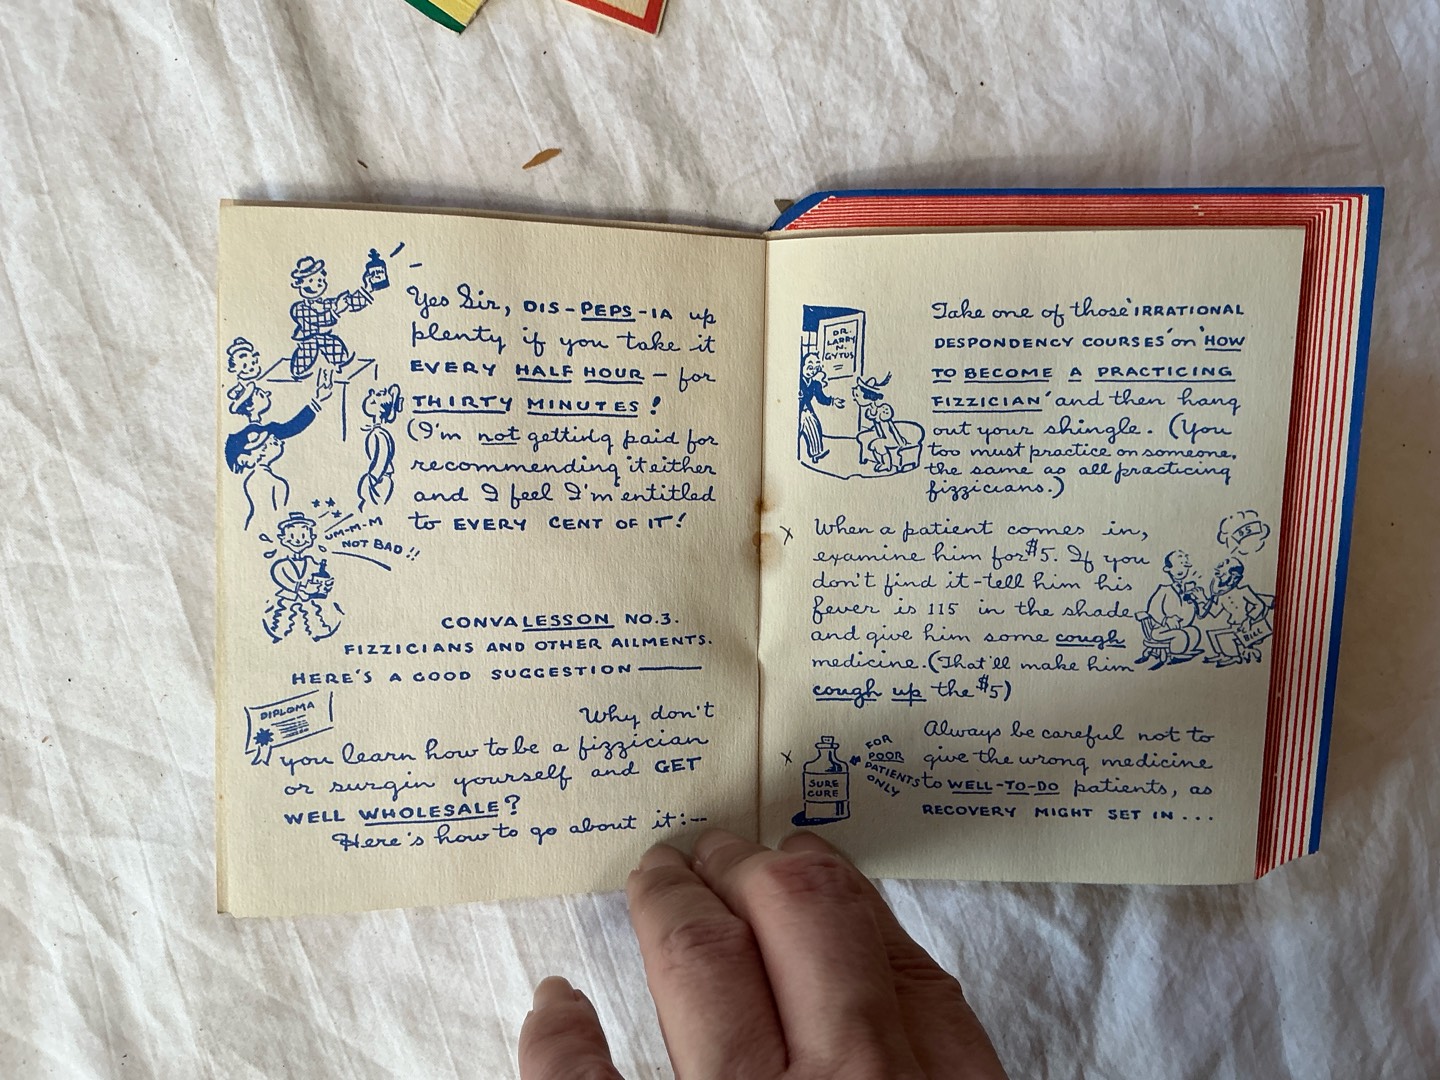 Yes Sir, DIS-PEPS-IA up
plenty if you take it
EVERY HALF HOUR - for
THIRTY MINUTES!
(I'm not getting paid for
recommending it either
and I feel I'm entitled
to EVERY CENT OF IT!
UM-M-M
NOT BAD!!
CONVALESSON NO.3.
FIZZICIANS AND OTHER AILMENTS.
HERE'S A GOOD SUGGESTION ———
DIPLOMA
Why don't
you learn how to be a fizzician
or surgin yourself and GET
WELL WHOLESALE?
Here's how to go about it:--
DR.
LARRY
N.
GYTUS
Take one of those 'IRRATIONAL
DESPONDENCY COURSES' on 'HOW
TO BECOME A PRACTICING
FIZZICIAN' and then hang
out your shingle. (You
too must practice on someone,
the same as all practicing
fizzicians.)
When a patient comes in,
examine him for $5. If you
don't find it - tell him his
fever is 115 in the shade
and give him some cough
medicine. (That'll make him
cough up the $5)
BILL
Always be careful not to
give the wrong medicine
to WELL-TO-DO patients, as
RECOVERY MIGHT SET IN...
SURE
CURE
FOR
POOR
PATIENTS
ONLY